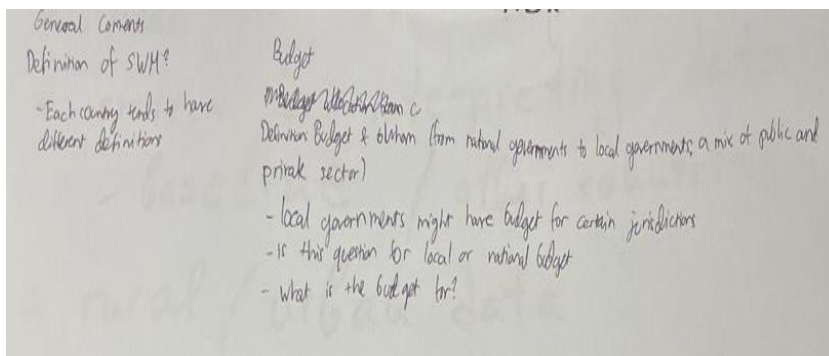 General Coments
Definition of SWM?
- Each country tends to have
different definitions
Budget
Definition Budget & (from national governments to local governments, a mix of public and
private sector)
- local governments might have budget for certain jurisdictions
- is this question for local or national budget
- what is the budget for?